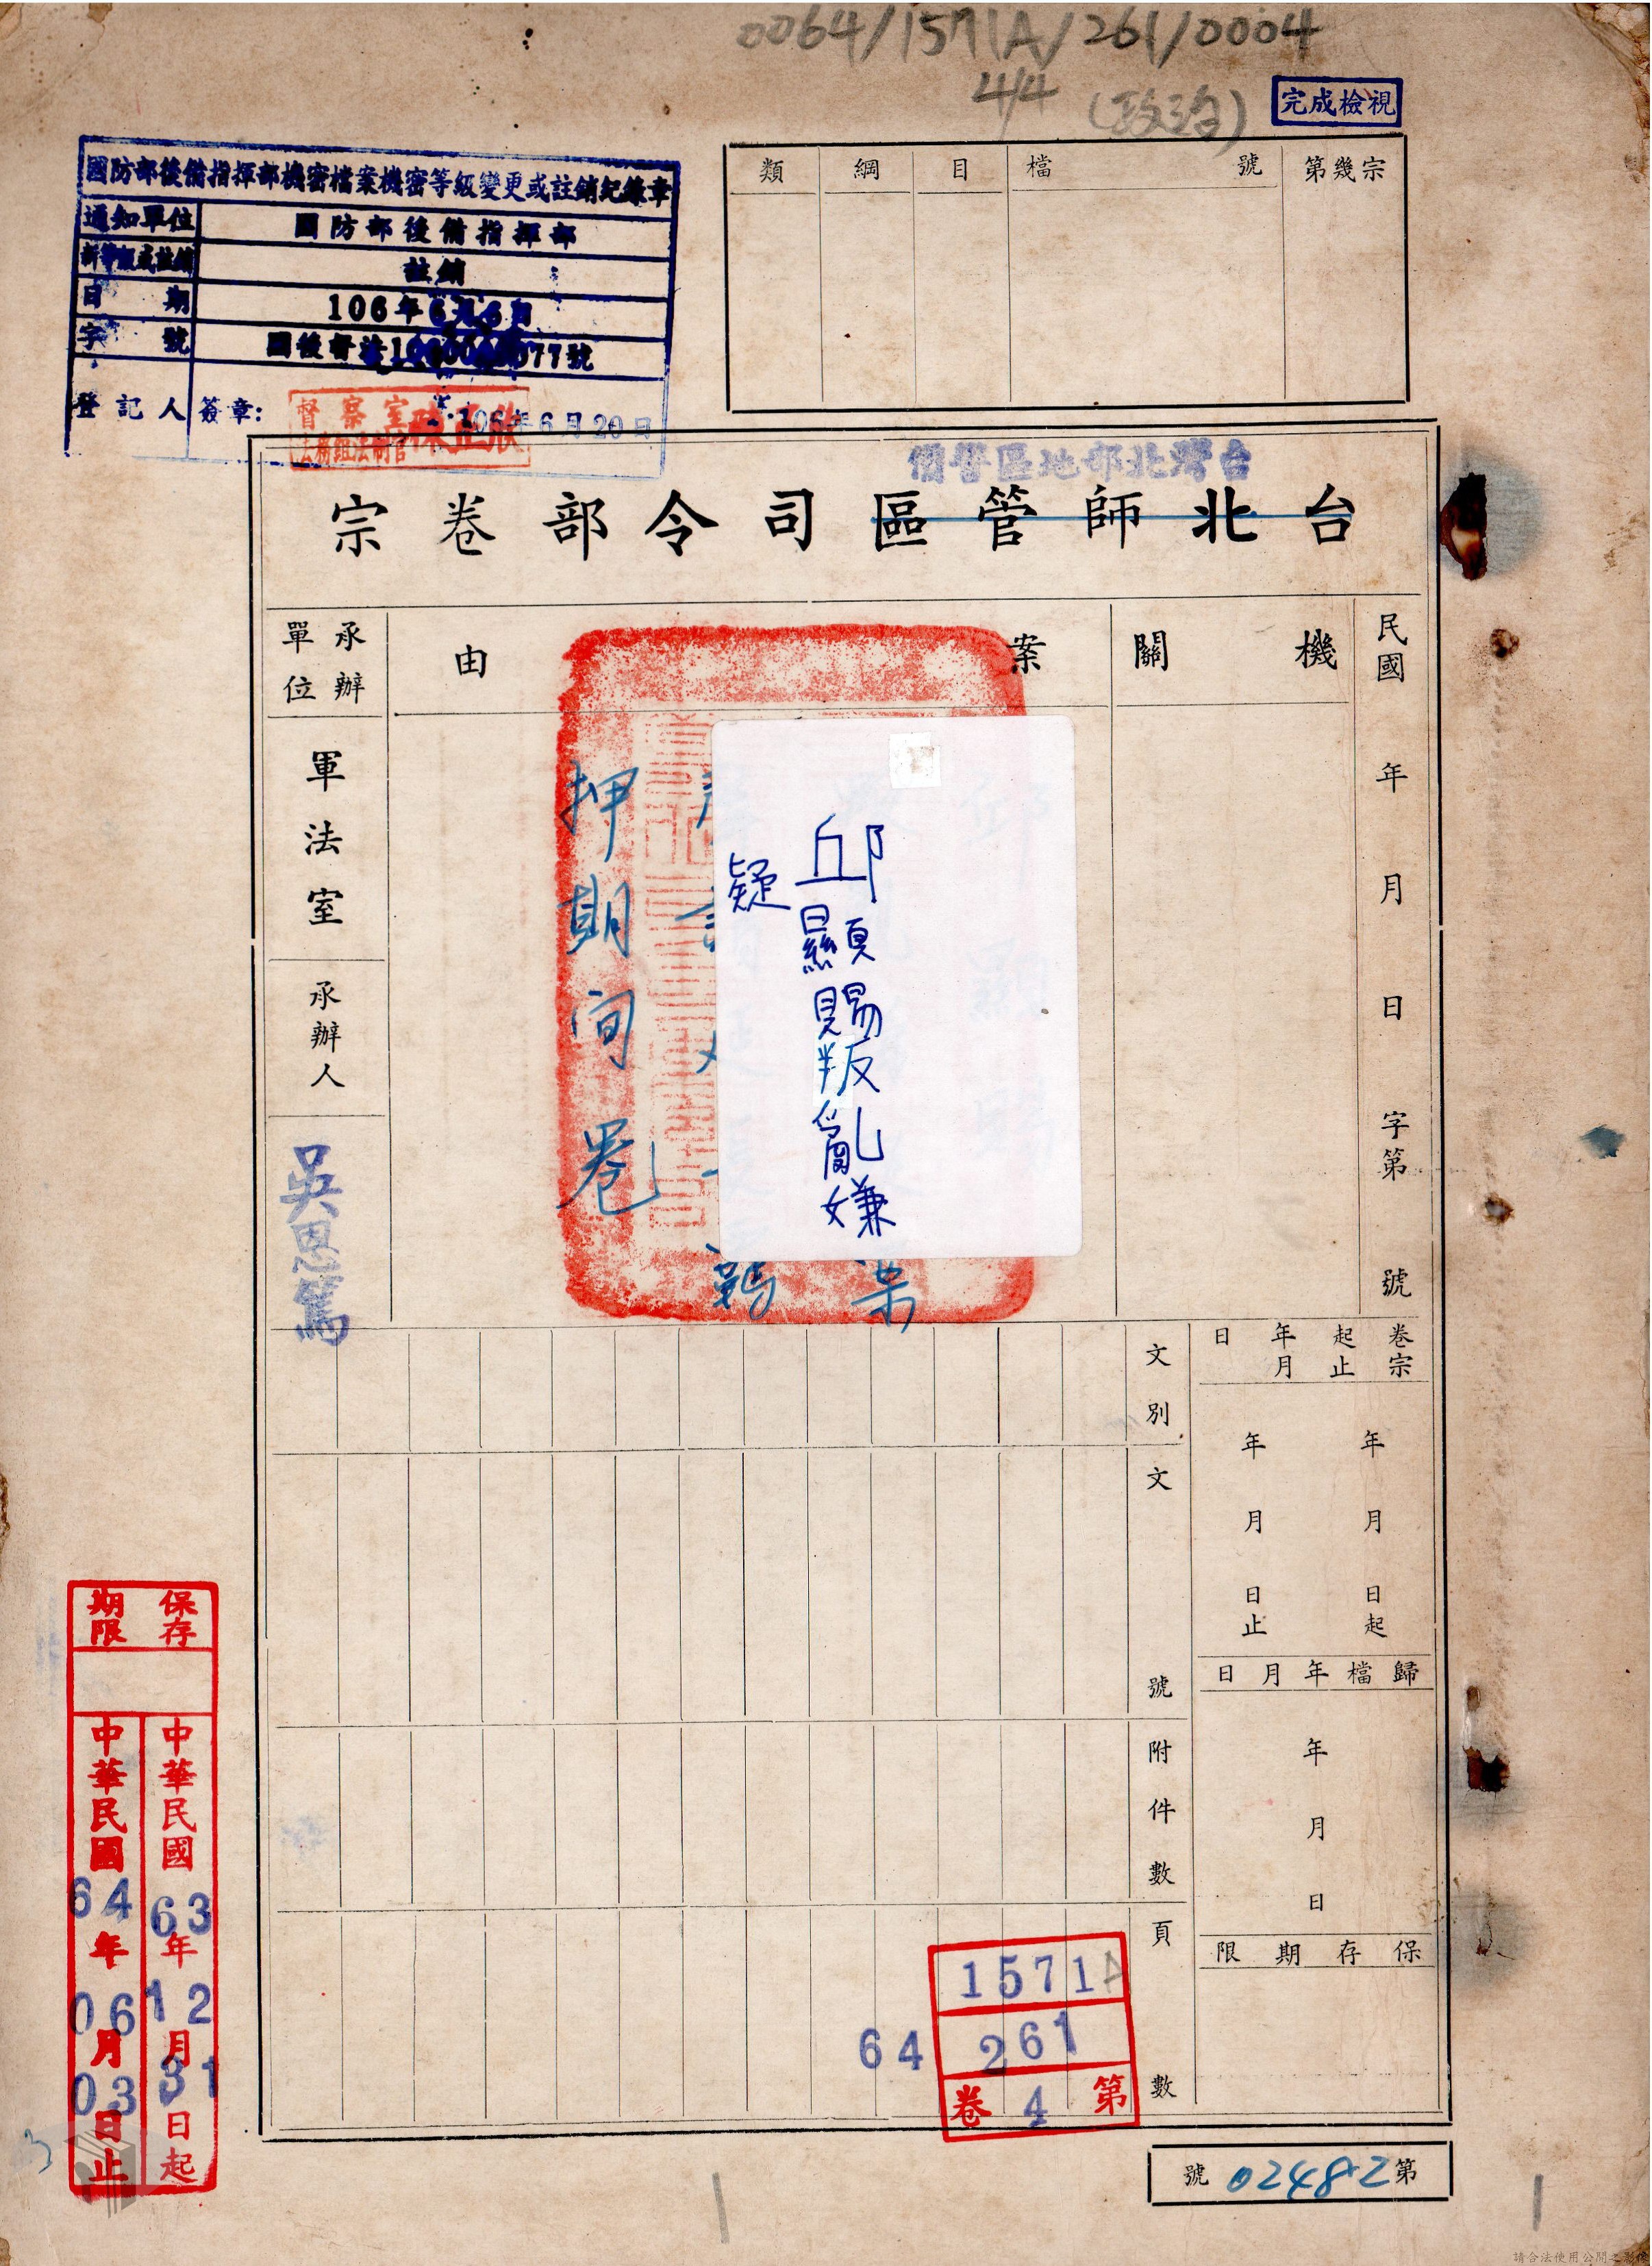 0064/1571A/261/0004
4/4 (政治)
完成檢視
國防部後備指揮部機密檔案機密等級變更或註銷紀錄章
通知單位 國防部後備指揮部
新等級或註銷 註銷
日期 106年6月6日
字號
登記人簽章:
督察室
法務組法制官
106年6月20日
類 綱 目 檔號 第幾宗
台灣北部地區警備
台北師管區司令部卷宗
民國 年 月 日 字第 號
機關
案由
承辦單位
軍法室
承辦人
吳恩篤
邱顯賜叛亂嫌疑
押期间卷
文別
文號
附件數
頁數
卷宗起止年月日
年月日起
年月日止
歸檔年月日
年月日
保存期限
保存期限
中華民國63年12月31日起
中華民國64年06月03日止
1571A
64 261
第4卷
第02482號
3
請合法使用公開之影像